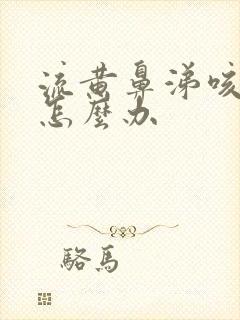 流黄鼻涕咳
怎麽办
駱馬